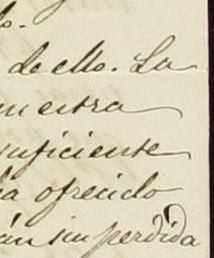 o.
de ello. La
muestra
suficiente
ha ofrecido
án sin perdida